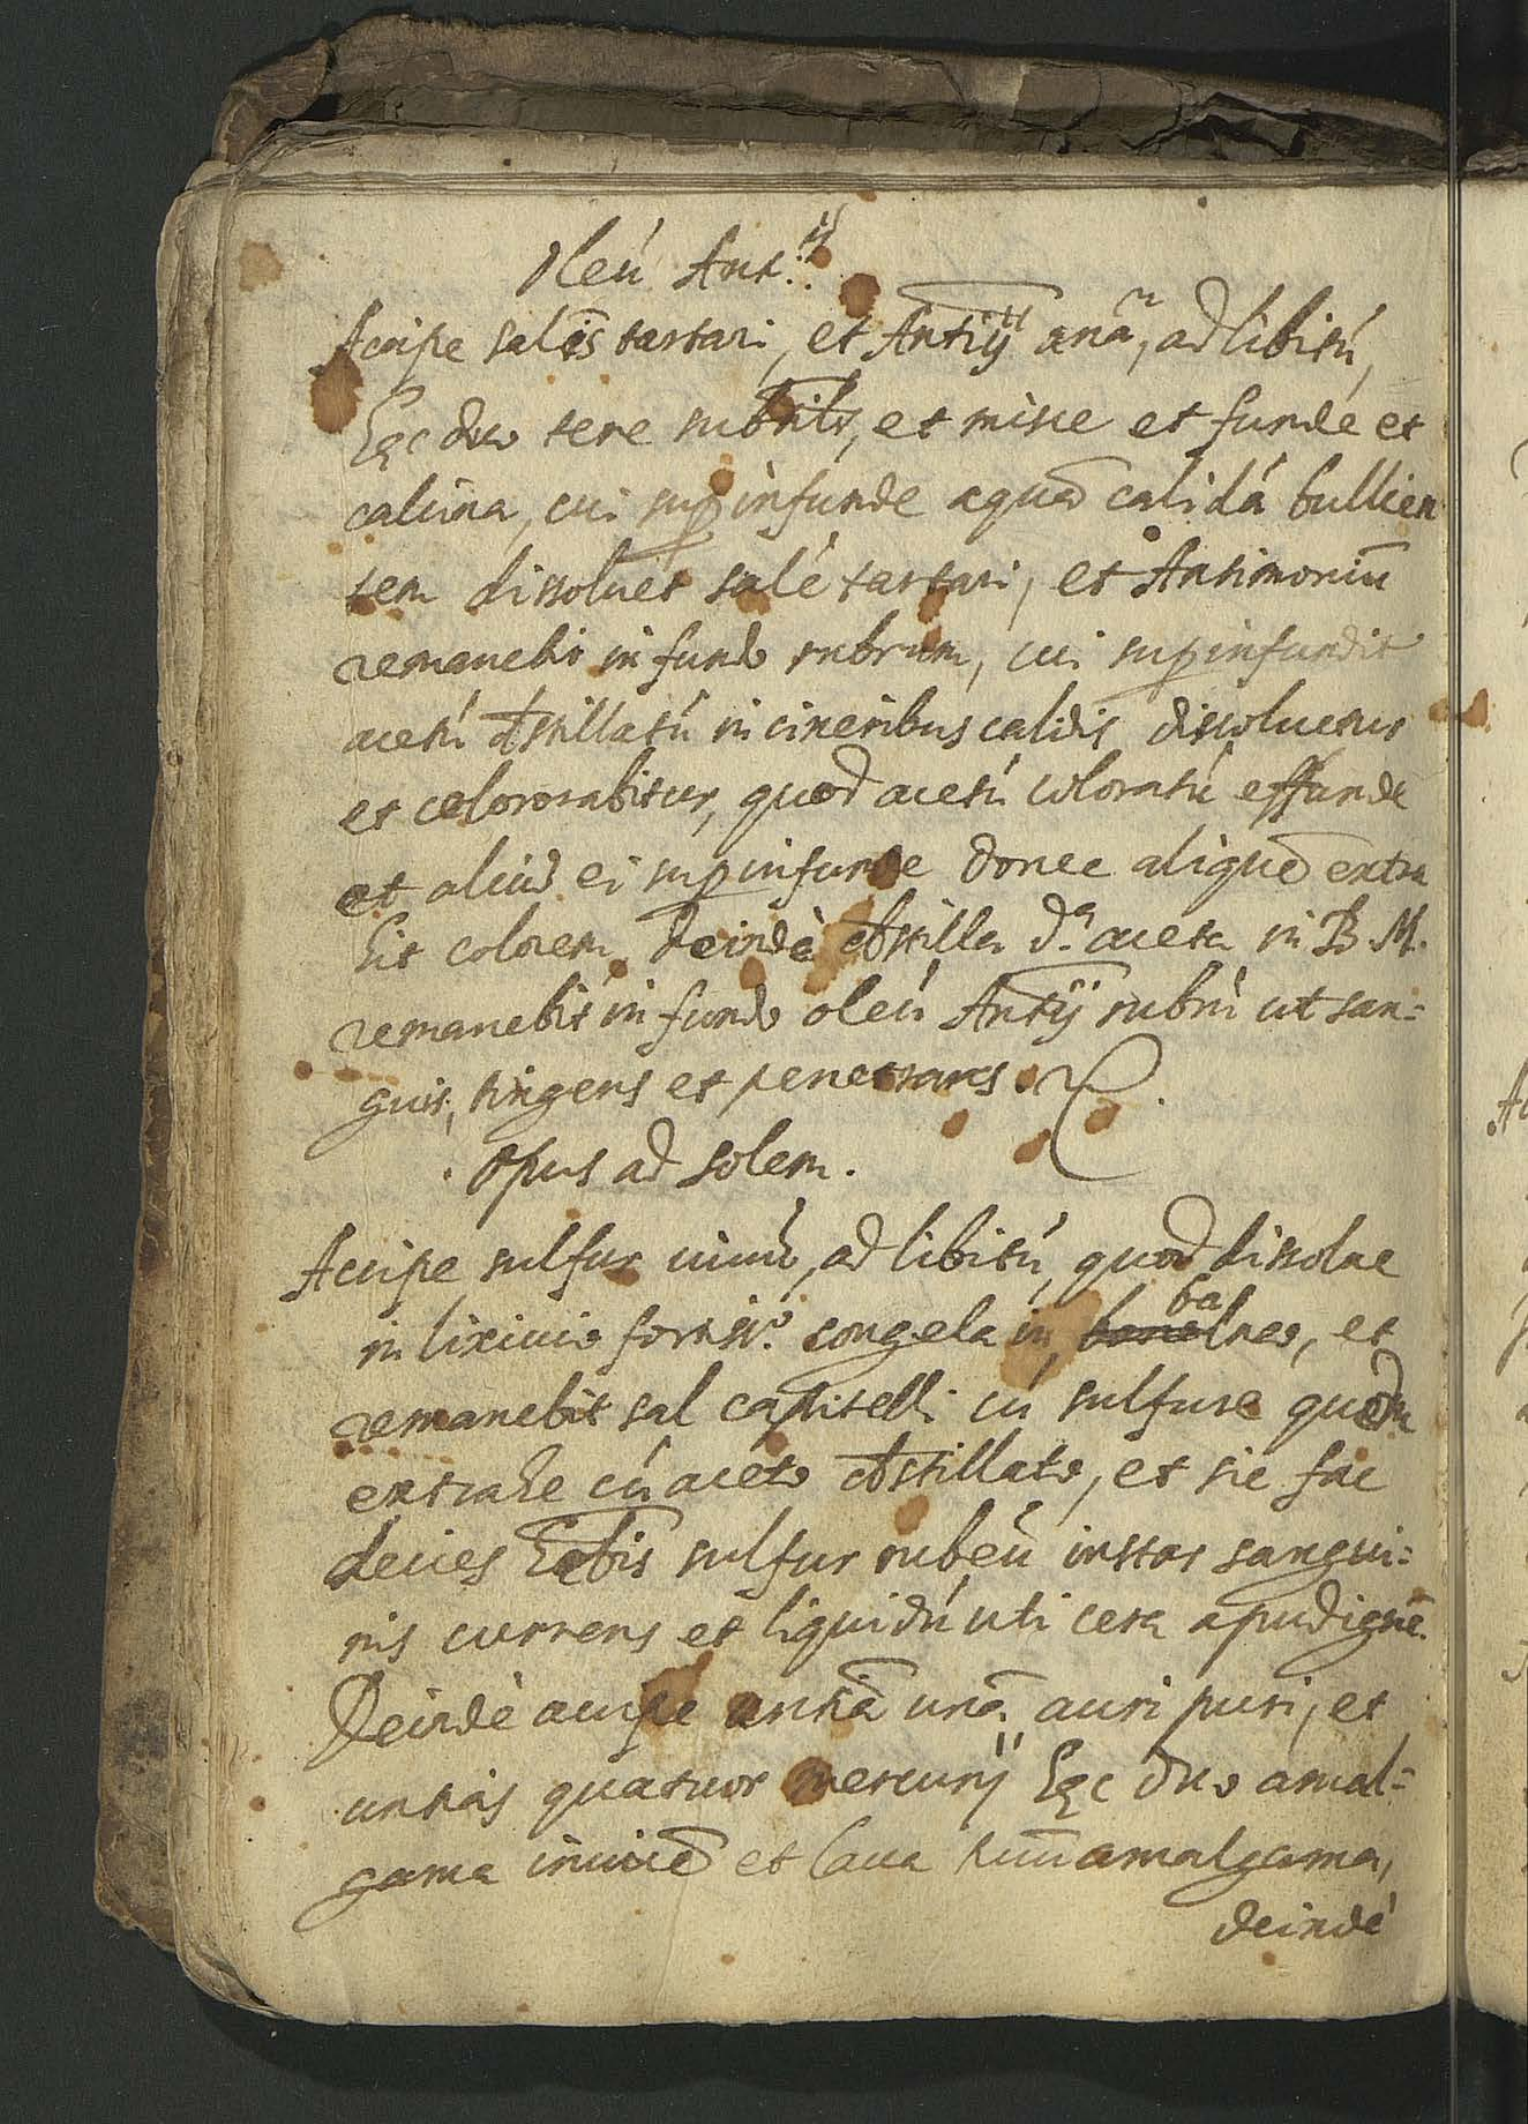 Oleú Ant:ij
Accipe salis tartari, et Antij anã, ad libitú,
Hęc duo tere subtilr, et misce et funde et
calcina, cui sup infunde aquã calidá bullien
tem dissoluet salé tartari, et Antimoniũ
remanebit in fundo rubrum, cui sup infundit
acetú dstillatú in cineribus calidis dissoluetur
et colorabitur, quod acetú coloratú effunde
et aliud ei sup infunde donec aliquẽ extra
hit colorem. deindè dstilla d.a aceta in B. M.
remanebit in fundo oleú Antij rubrú ut san=
guis, tingens et penetrans.
Opus ad solem.
Accipe sulfur uiuũ, ad libitú, quod dissolue
in lixiuio fortiss.o congela in balneo, et
remanebit sal capitelli cú sulfure quem
extrahe cú aceto dstillato, et sic fac
decies habis sulfur rubeú instar sangui=
nis currens et liquidú uti cera apud ignẽ.
Deindè accipe untiã unã auri puri, et
untias quatuor mercurij Hęc duo amal=
gama inuicẽ et laua tuũ amalgama,
deindé